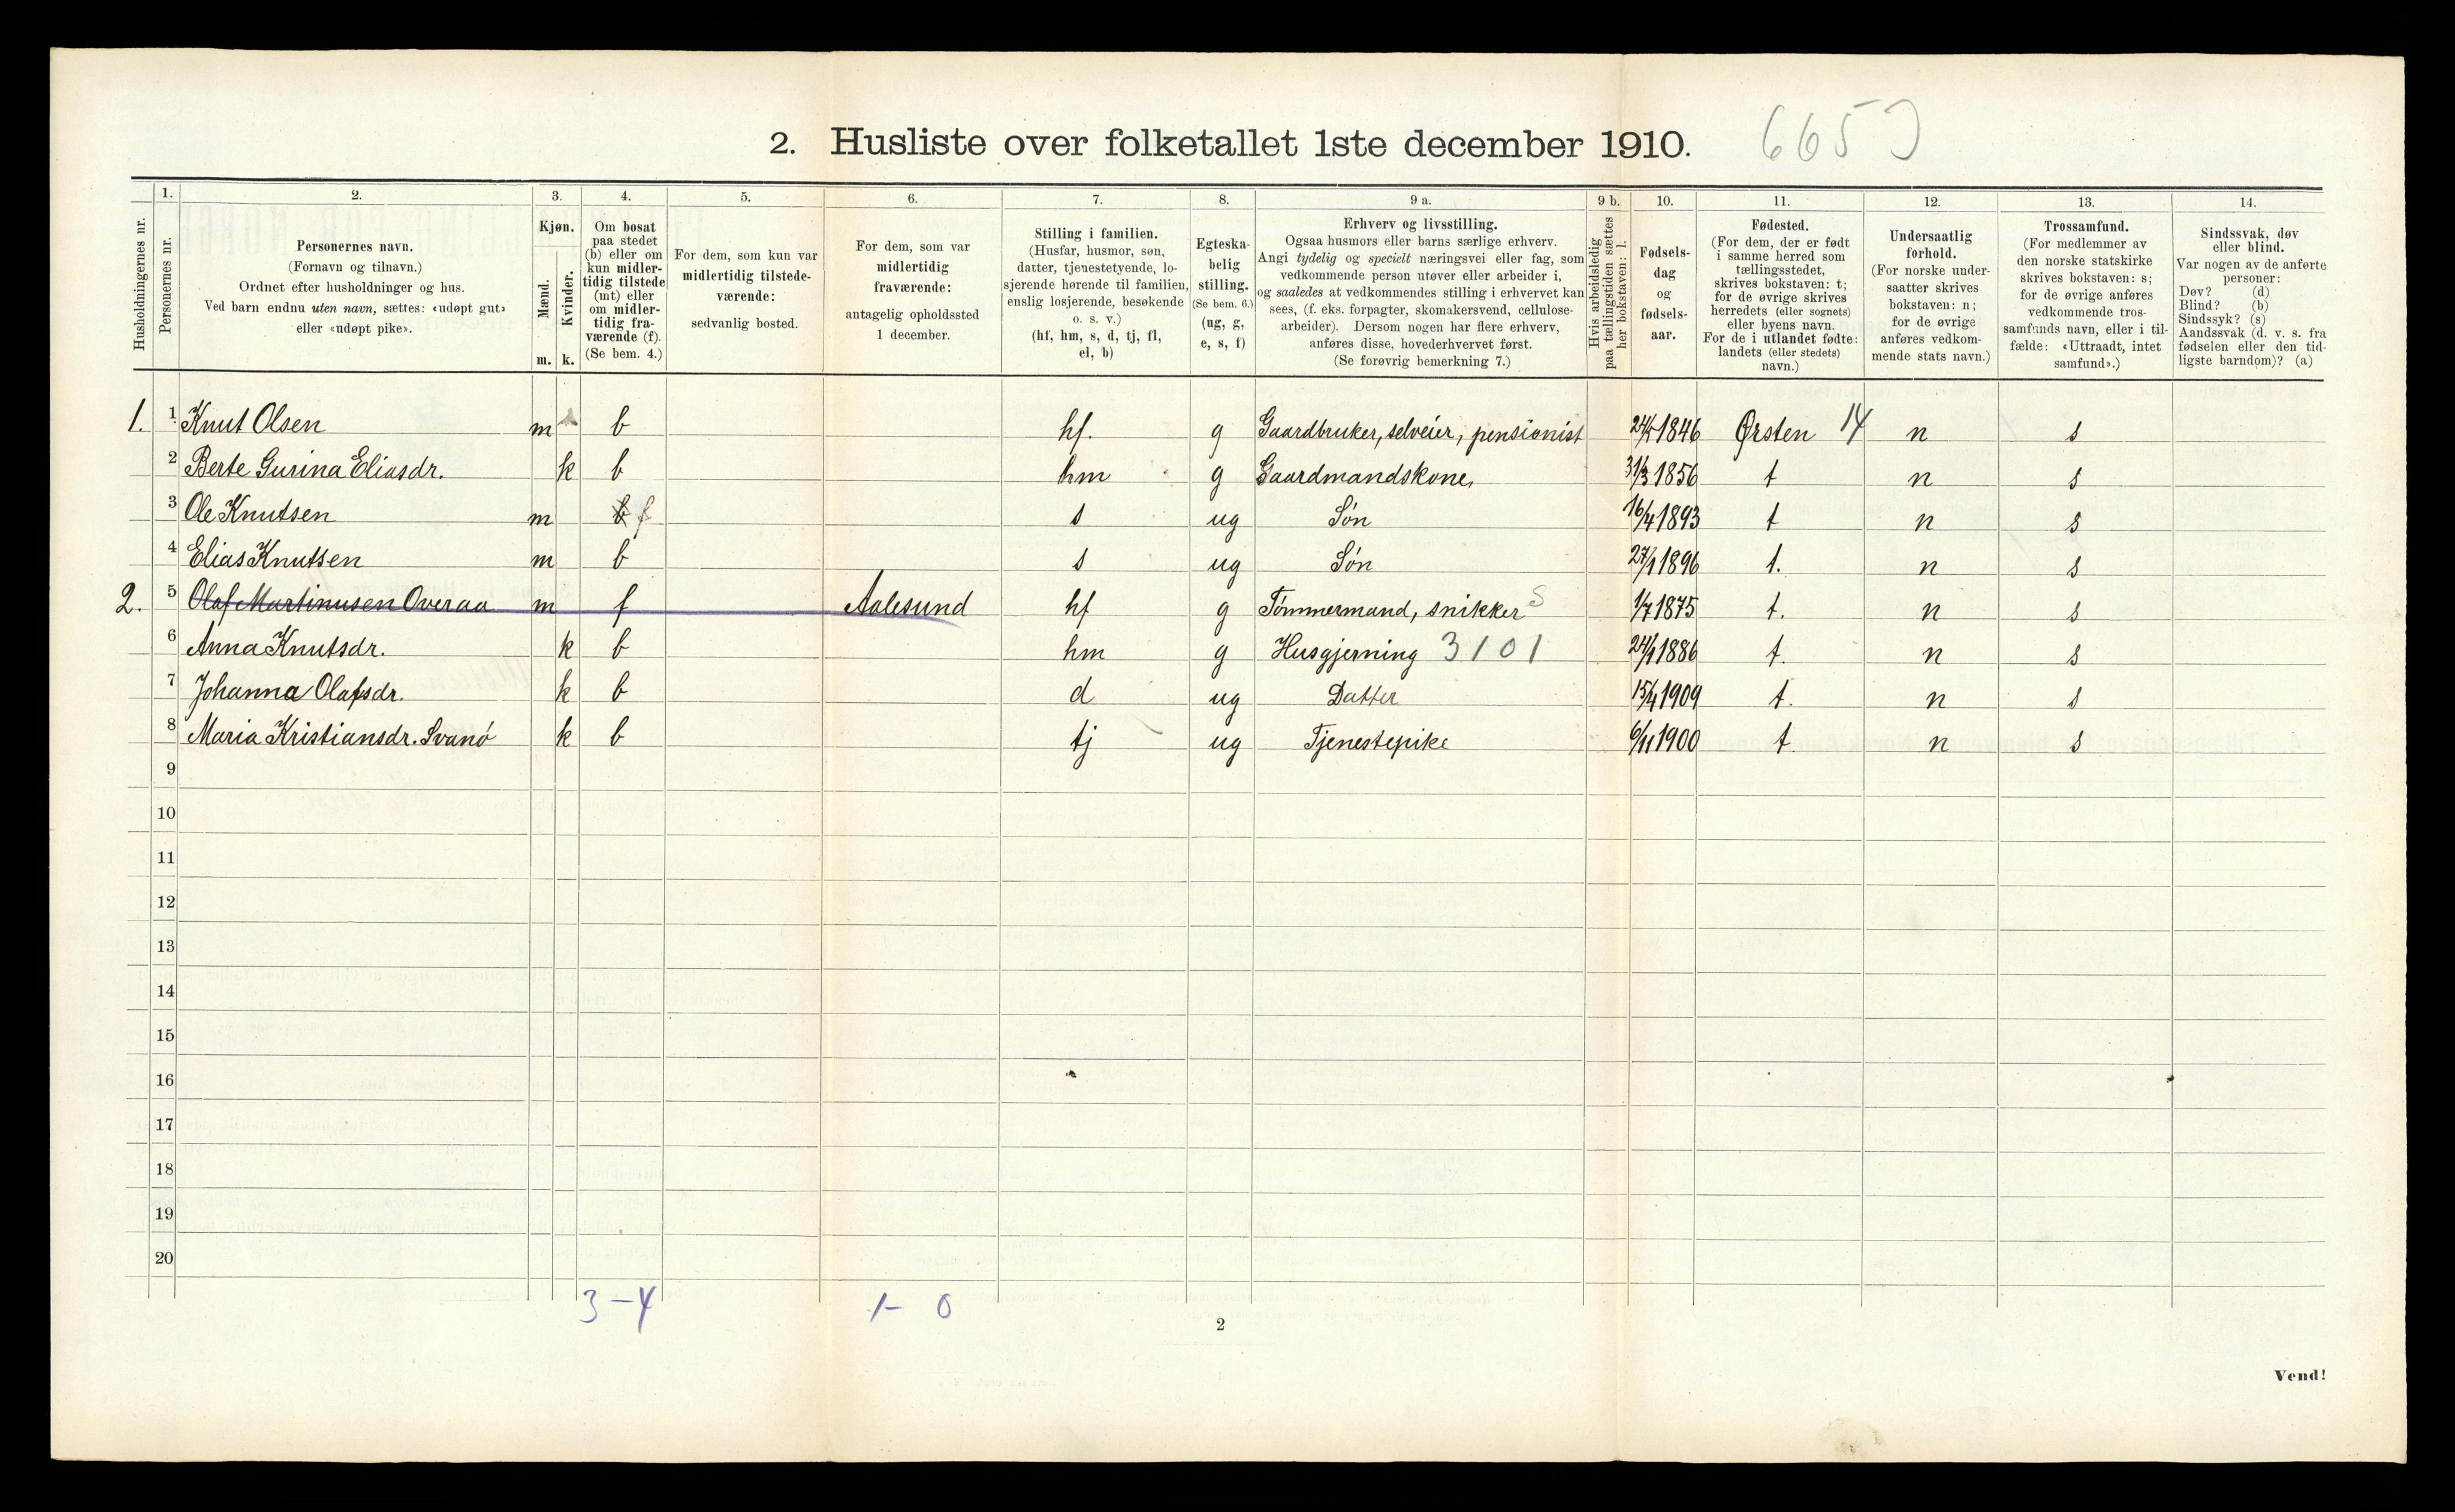 2. Husliste over folketallet 1ste december 1910.
1. 2. 3. 4. 5. 6. 7. 8. 9 a. 9 b. 10. 11. 12. 13. 14.
Husholdningernes nr.
Personernes nr.
Personernes navn.
(Fornavn og tilnavn.)
Ordnet efter husholdninger og hus.
Ved barn endnu uten navn, sættes: «udøpt gut»
eller «udøpt pike».
Kjøn.
Mænd.
Kvinder.
m. k.
Om bosat
paa stedet
(b) eller om
kun midler-
tidig tilstede
(mt) eller
om midler-
tidig fra-
værende (f).
(Se bem. 4.)
For dem, som kun var
midlertidig tilstede-
værende:
sedvanlig bosted.
For dem, som var
midlertidig
fraværende:
antagelig opholdssted
1 december.
Stilling i familien.
(Husfar, husmor, søn,
datter, tjenestetyende, lo-
sjerende hørende til familien,
enslig losjerende, besøkende
o. s. v.)
(hf, hm, s, d, tj, fl,
el, b)
Egteska-
belig
stilling.
(Se bem. 6.)
(ug, g,
e, s, f)
Erhverv og livsstilling.
Ogsaa husmors eller barns særlige erhverv.
Angi tydelig og specielt næringsvei eller fag, som
vedkommende person utøver eller arbeider i,
og saaledes at vedkommendes stilling i erhvervet kan
sees, (f. eks. forpagter, skomakersvend, cellulose-
arbeider). Dersom nogen har flere erhverv,
anføres disse, hovederhvervet først.
(Se forøvrig bemerkning 7.)
Hvis arbeidsledig
paa tællingstiden sættes
her bokstaven: l.
Fødsels-
dag
og
fødsels-
aar.
Fødested.
(For dem, der er født
i samme herred som
tællingsstedet,
skrives bokstaven: t;
for de øvrige skrives
herredets (eller sognets)
eller byens navn.
For de i utlandet fødte:
landets (eller stedets)
navn.)
Undersaatlig
forhold.
(For norske under-
saatter skrives
bokstaven: n;
for de øvrige
anføres vedkom-
mende stats navn.)
Trossamfund.
(For medlemmer av
den norske statskirke
skrives bokstaven: s;
for de øvrige anføres
vedkommende tros-
samfunds navn, eller i til-
fælde: «Uttraadt, intet
samfund».)
Sindssvak, døv
eller blind.
Var nogen av de anførte
personer:
Døv? (d)
Blind? (b)
Sindssyk? (s)
Aandssvak (d. v. s. fra
fødselen eller den tid-
ligste barndom)? (a)
1. 1 Knut Olsen m b hf. g Gaardbruker, selveier, pensionist 1846 Ørsten 14 n s
2 Berte Gurina Eliasdr. k b hm g Gaardmandskone, 31/3 1856 t n s
3 Ole Knutsen m b f s ug Søn 16/4 1893 t n s
4 Elias Knutsen m b s ug Søn 27/1 1896 t. n s
2. 5 Olaf Martinusen Overaa m f Aalesund hf g Tømmermand, snikker S 1/7 1875 t. n s
6 Anna Knutsdr. k b hm g Husgjerning 3101 24/1 1886 t. n s
7 Johanna Olafsdr. k b d ug Datter 15/4 1909 t. n s
8 Maria Kristiansdr. Svanø k b tj ug Tjenestepike 6/11 1900 t. n s
9
10
11
12
13
14
15
16
17
18
19
20
3-4 1- 0
2
Vend!